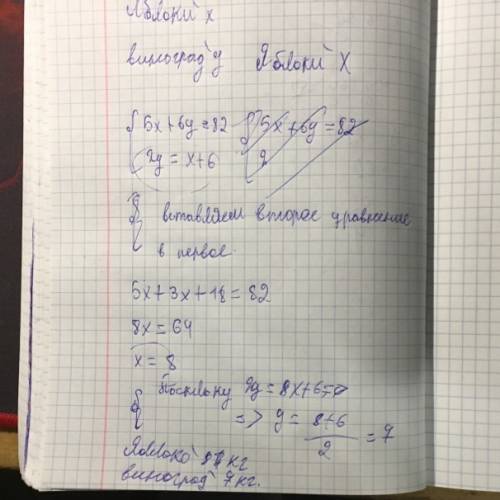 Яблоки x
виноград y Яблоки X
5x+6y=82 5x+6y=82
2y = x+6 2
вставляем второе уравнение
в первое.
5x+3x+18=82
8x=64
x=8
Поскольку 2y=8x+6
=> y = 8+6/2 = 7
Яблоко 8 кг
виноград 7 кг.